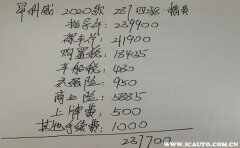 昂科威 2020款 237四驱 精英
指导价 239900
裸车价 219000
购置税 18435
车船税 480
交强险 950
商业险 5835
上牌费 500
其他手续费: 1000
237700
www.icauto.com.cn